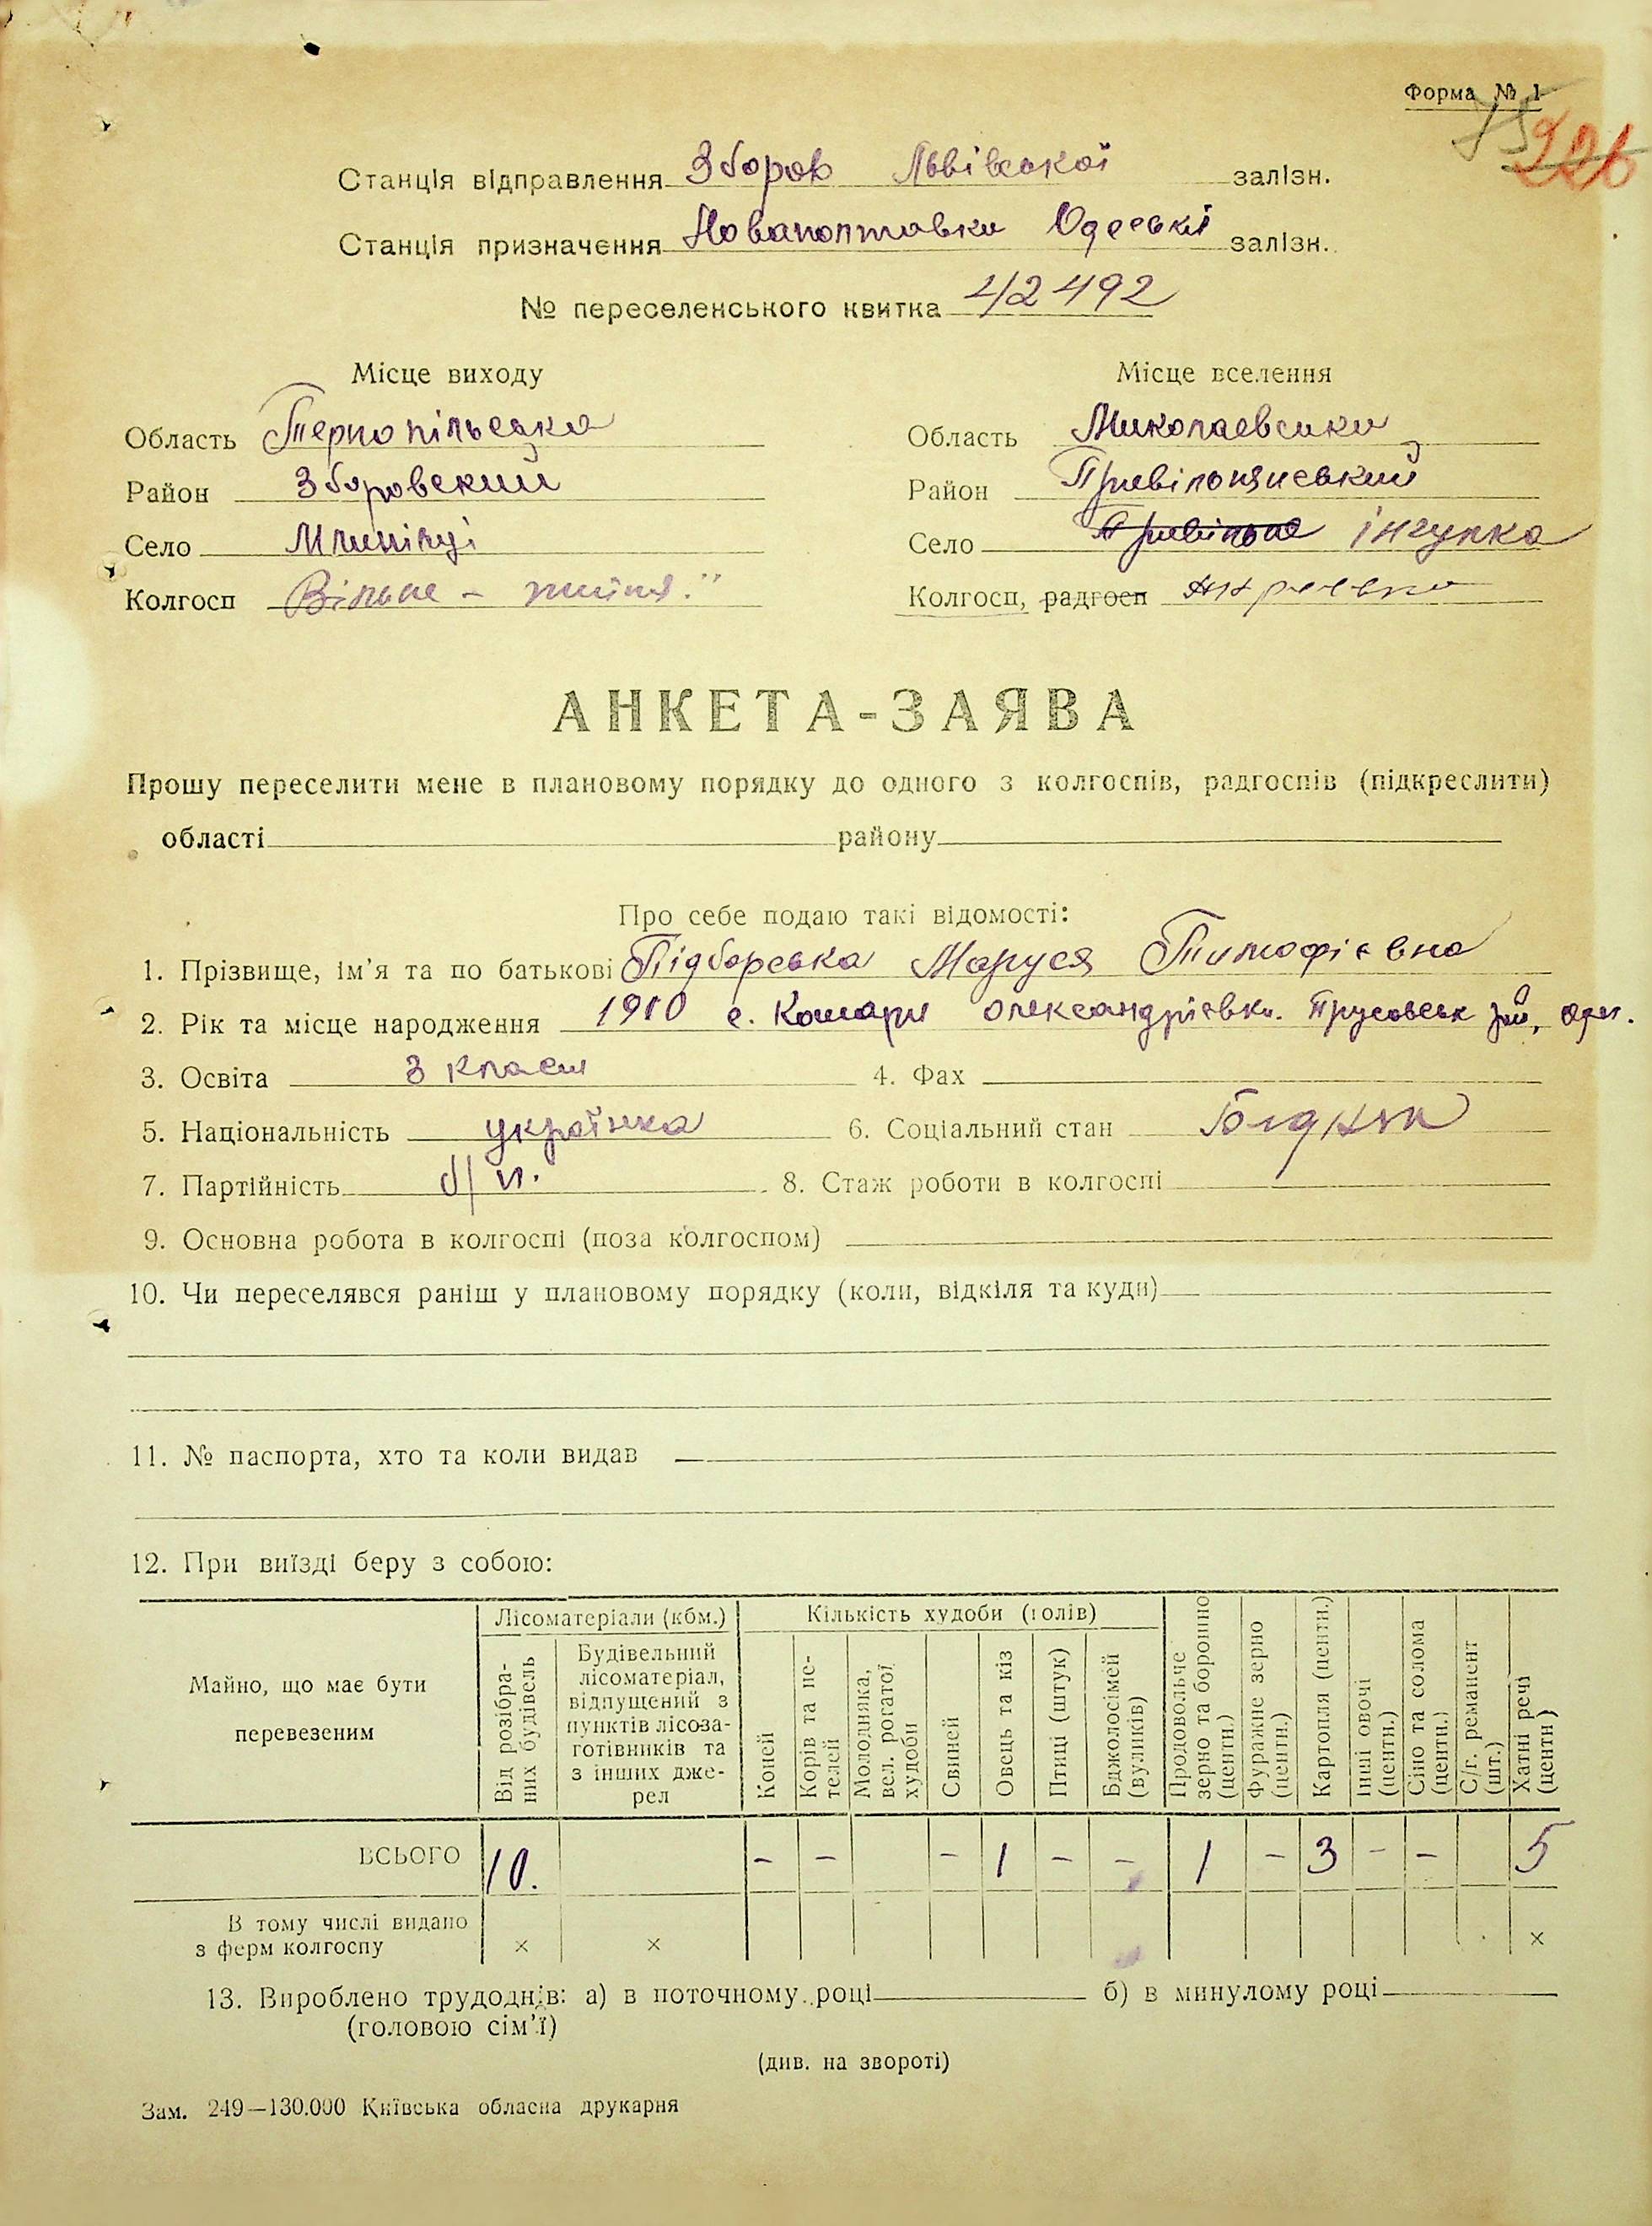 Форма № 1
226
Станція відправлення Зборов Львівської залізн.
Станція призначення Новаполтавка Одеські залізн.
№ переселенського квитка 42492
Місце виходу Місце вселення
Область Тернопільська Область Миколаевська
Район Зборовский Район Привільнянський
Село Млинівці Село Привільне інгулка
Колгосп Вільне - життя." Колгосп, радгосп
АНКЕТА-ЗАЯВА
Прошу переселити мене в плановому порядку до одного з колгоспів, радгоспів (підкреслити)
області району
Про себе подаю такі відомості:
1. Прізвище, ім'я та по батькові Підборська Маруся Тимофієвна
2. Рік та місце народження 1910 с. Комари олександрієвка. рай,
3. Освіта 3 класи 4. Фах
5. Національність українка 6. Соціальний стан
7. Партійність б/п. 8. Стаж роботи в колгоспі
9. Основна робота в колгоспі (поза колгоспом)
10. Чи переселявся раніш у плановому порядку (коли, відкіля та куди)
11. № паспорта, хто та коли видав
12. При виїзді беру з собою:
Майно, що має бути перевезеним
Лісоматеріали (кбм.)
Від розібраних будівель
Будівельний лісоматеріал, відпущений з пунктів лісозаготівників та з інших джерел
Кількість худоби (голів)
Коней
Корів та нетелей
Молодняка, вел. рогатої худоби
Свиней
Овець та кіз
Птиці (штук)
Бджолосімей (вуликів)
Продовольче зерно та борошно (центн.)
Фуражне зерно (центн.)
Картопля (центн.)
Інші овочі (центн.)
Сіно та солома (центн.)
С/г. реманент (шт.)
Хатні речі (центн)
ВСЬОГО 10. - - - 1 - - 1 - 3 - - 5
В тому числі видано
з ферм колгоспу × × ×
13. Вироблено трудоднів: а) в поточному році б) в минулому році
(головою сім'ї)
(див. на звороті)
Зам. 249—130.000 Київська обласна друкарня